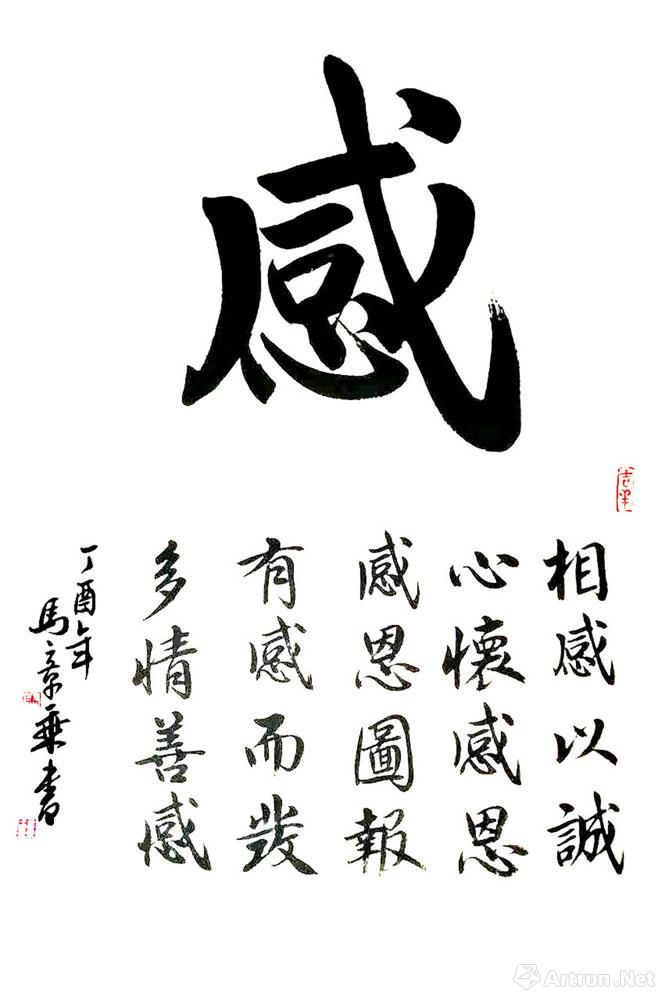 感
相感以誠
心懷感恩
感恩圖報
有感而發
多情善感
丁酉年
馬章乗書
Artron.Net